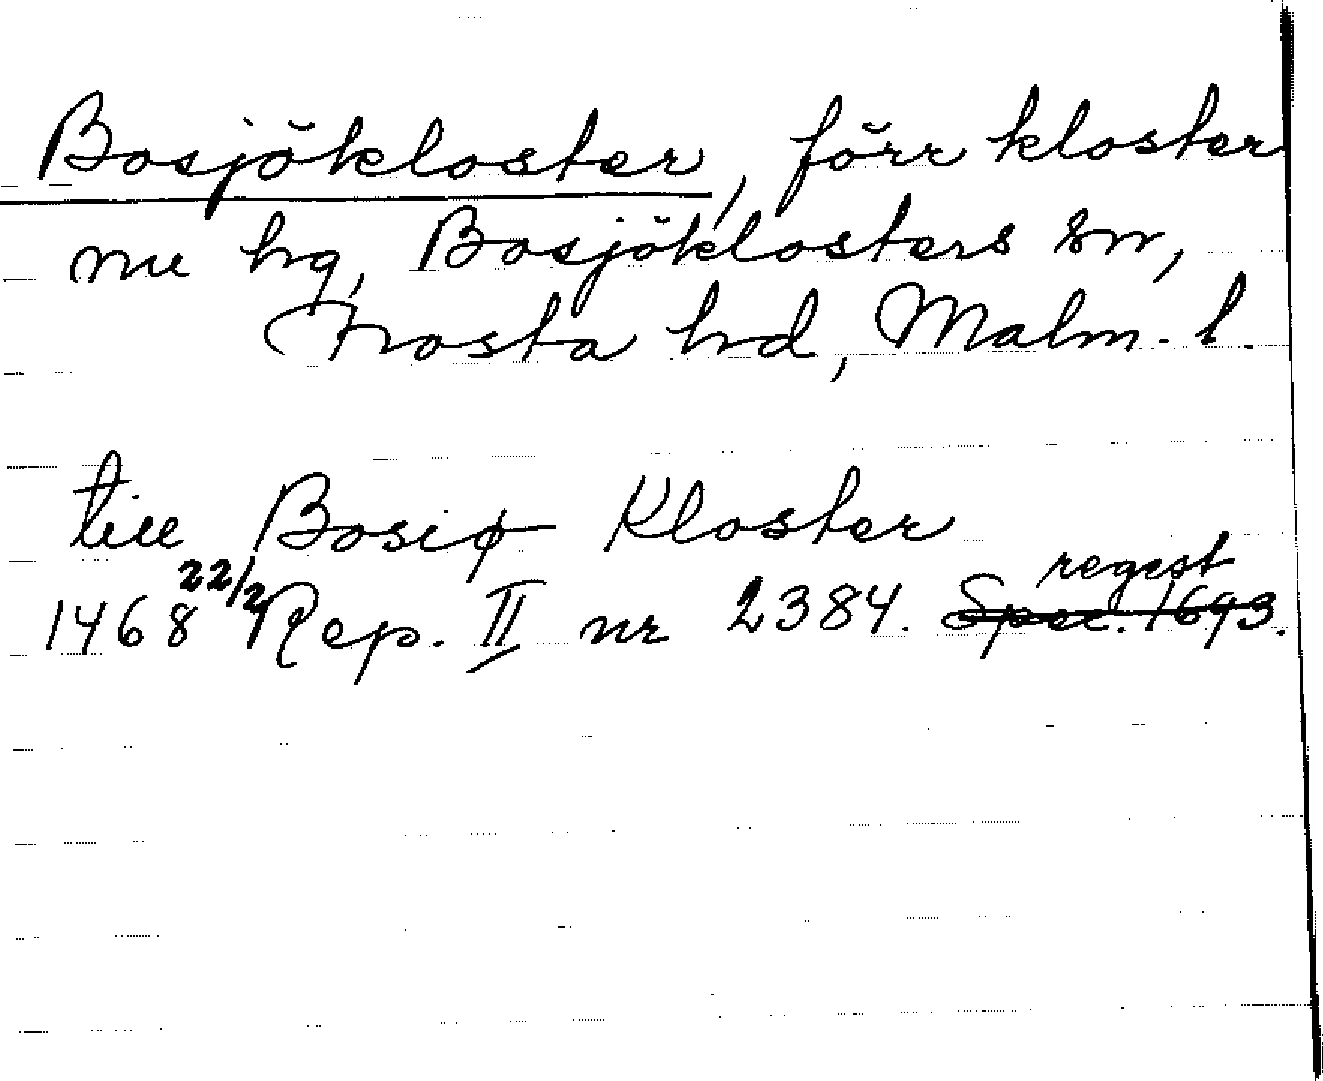 Bosjökloster, förr kloster
nu hg, Bosjöklosters sn,
Frosta hd, Malm. l.
till Bosiø Kloster
1468 22/2 Rep. II nr 2384. regest
Spec. 1693.